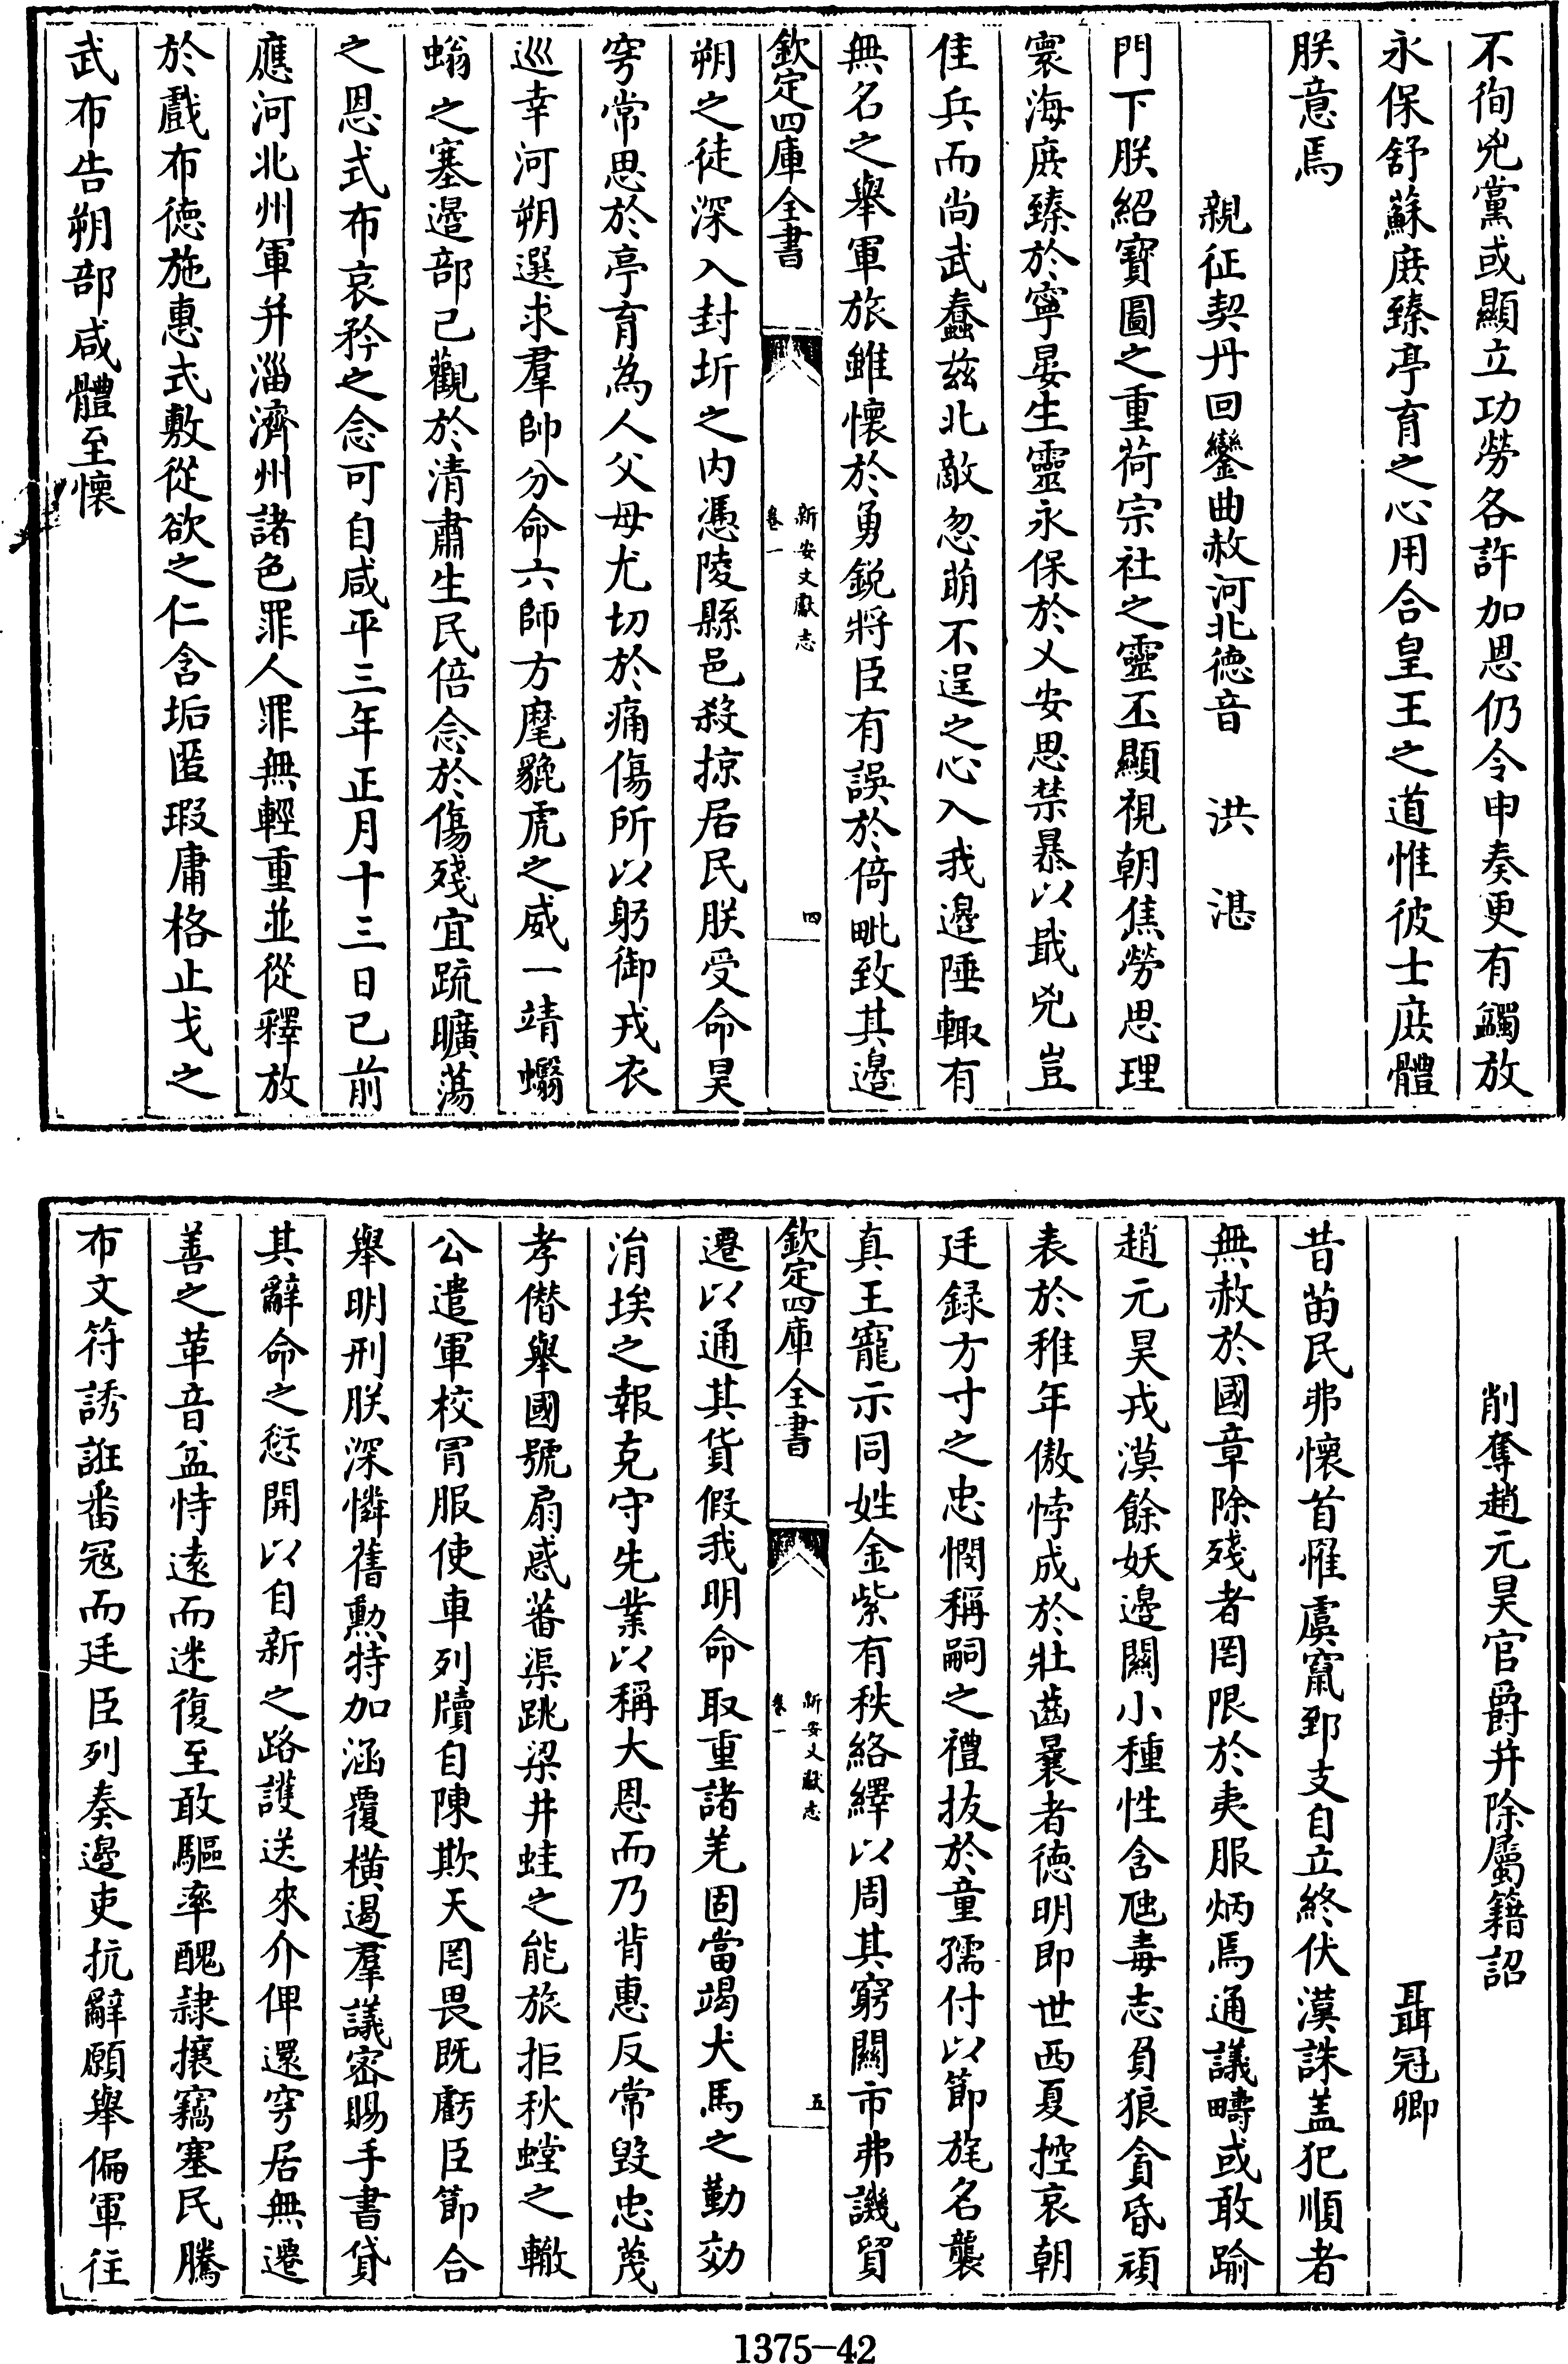 不徇兇黨或顯立功勞各許加恩仍令申奏更有蠲放
永保舒蘇庶臻亭育之心用合皇王之道惟彼士庶體
朕意焉
親征契丹回鑾曲赦河北德音　洪　湛
門下朕紹寶圖之重荷宗社之靈丕顯視朝焦勞思理
寰海庶臻於寧晏生靈永保於乂安思禁暴以戢兇豈
佳兵而尚武蠢兹北敵忽萌不逞之心入我邊陲輙有
無名之舉軍旅雖懷於勇銳將臣有誤於倚毗致其邉
欽定四庫全書
新安文獻志
卷一
四
朔之徒深入封圻之内憑陵縣邑殺掠居民朕受命昊
穹常思於亭育為人父母尤切於痛傷所以躬御戎衣
巡幸河朔選求羣帥分命六師方麾貔虎之威一靖蠮
螉之塞邉部已觀於清肅生民倍念於傷殘宜䟽曠蕩
之恩式布哀矜之念可自咸平三年正月十三日已前
應河北州軍并淄濟州諸色罪人罪無輕重並從釋放
於戲布徳施惠式敷從欲之仁含垢匿瑕庸格止戈之
武布告朔部咸體至懷
削奪趙元昊官爵并除屬籍詔
聶冠卿
昔苗民弗懷首罹虞竄郅支自立終伏漢誅盖犯順者
無赦於國章除殘者罔限於夷服炳焉通議疇或敢踰
趙元昊戎漠餘妖邉關小種性含虺毒志負狼貪昏頑
表於稚年傲悖成於壯齒曩者徳明即世西夏控哀朝
廷録方寸之忠憫稱嗣之禮拔於童孺付以節旄名襲
真王寵示同姓金紫有秩絡繹以周其窮關市弗譏貿
欽定四庫全書
新安文獻志
卷一
五
遷以通其貨假我明命取重諸羌固當竭犬馬之勤効
涓埃之報克守先業以稱大恩而乃背惠反常毀忠蔑
孝僣舉國號扇惑蕃渠跳梁井蛙之能旅拒秋螳之轍
公遣軍校胥服使車列牘自陳欺天罔畏既虧臣節合
舉明刑朕深憐舊勲特加涵覆横遏羣議密賜手書貸
其辭命之愆開以自新之路護送來介俾還穹居無遷
善之革音益恃逺而迷復至敢驅率醜隷攘竊塞民騰
布文符誘誑番冦而廷臣列奏邉吏抗辭願舉偏軍往
1375-42